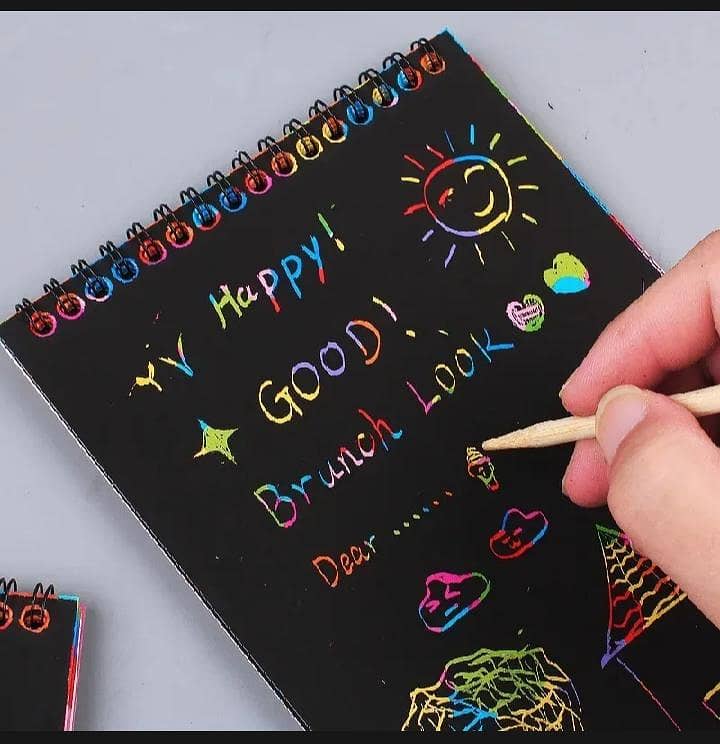 Happy!
GOOD!
Brunch Look
Dear .......